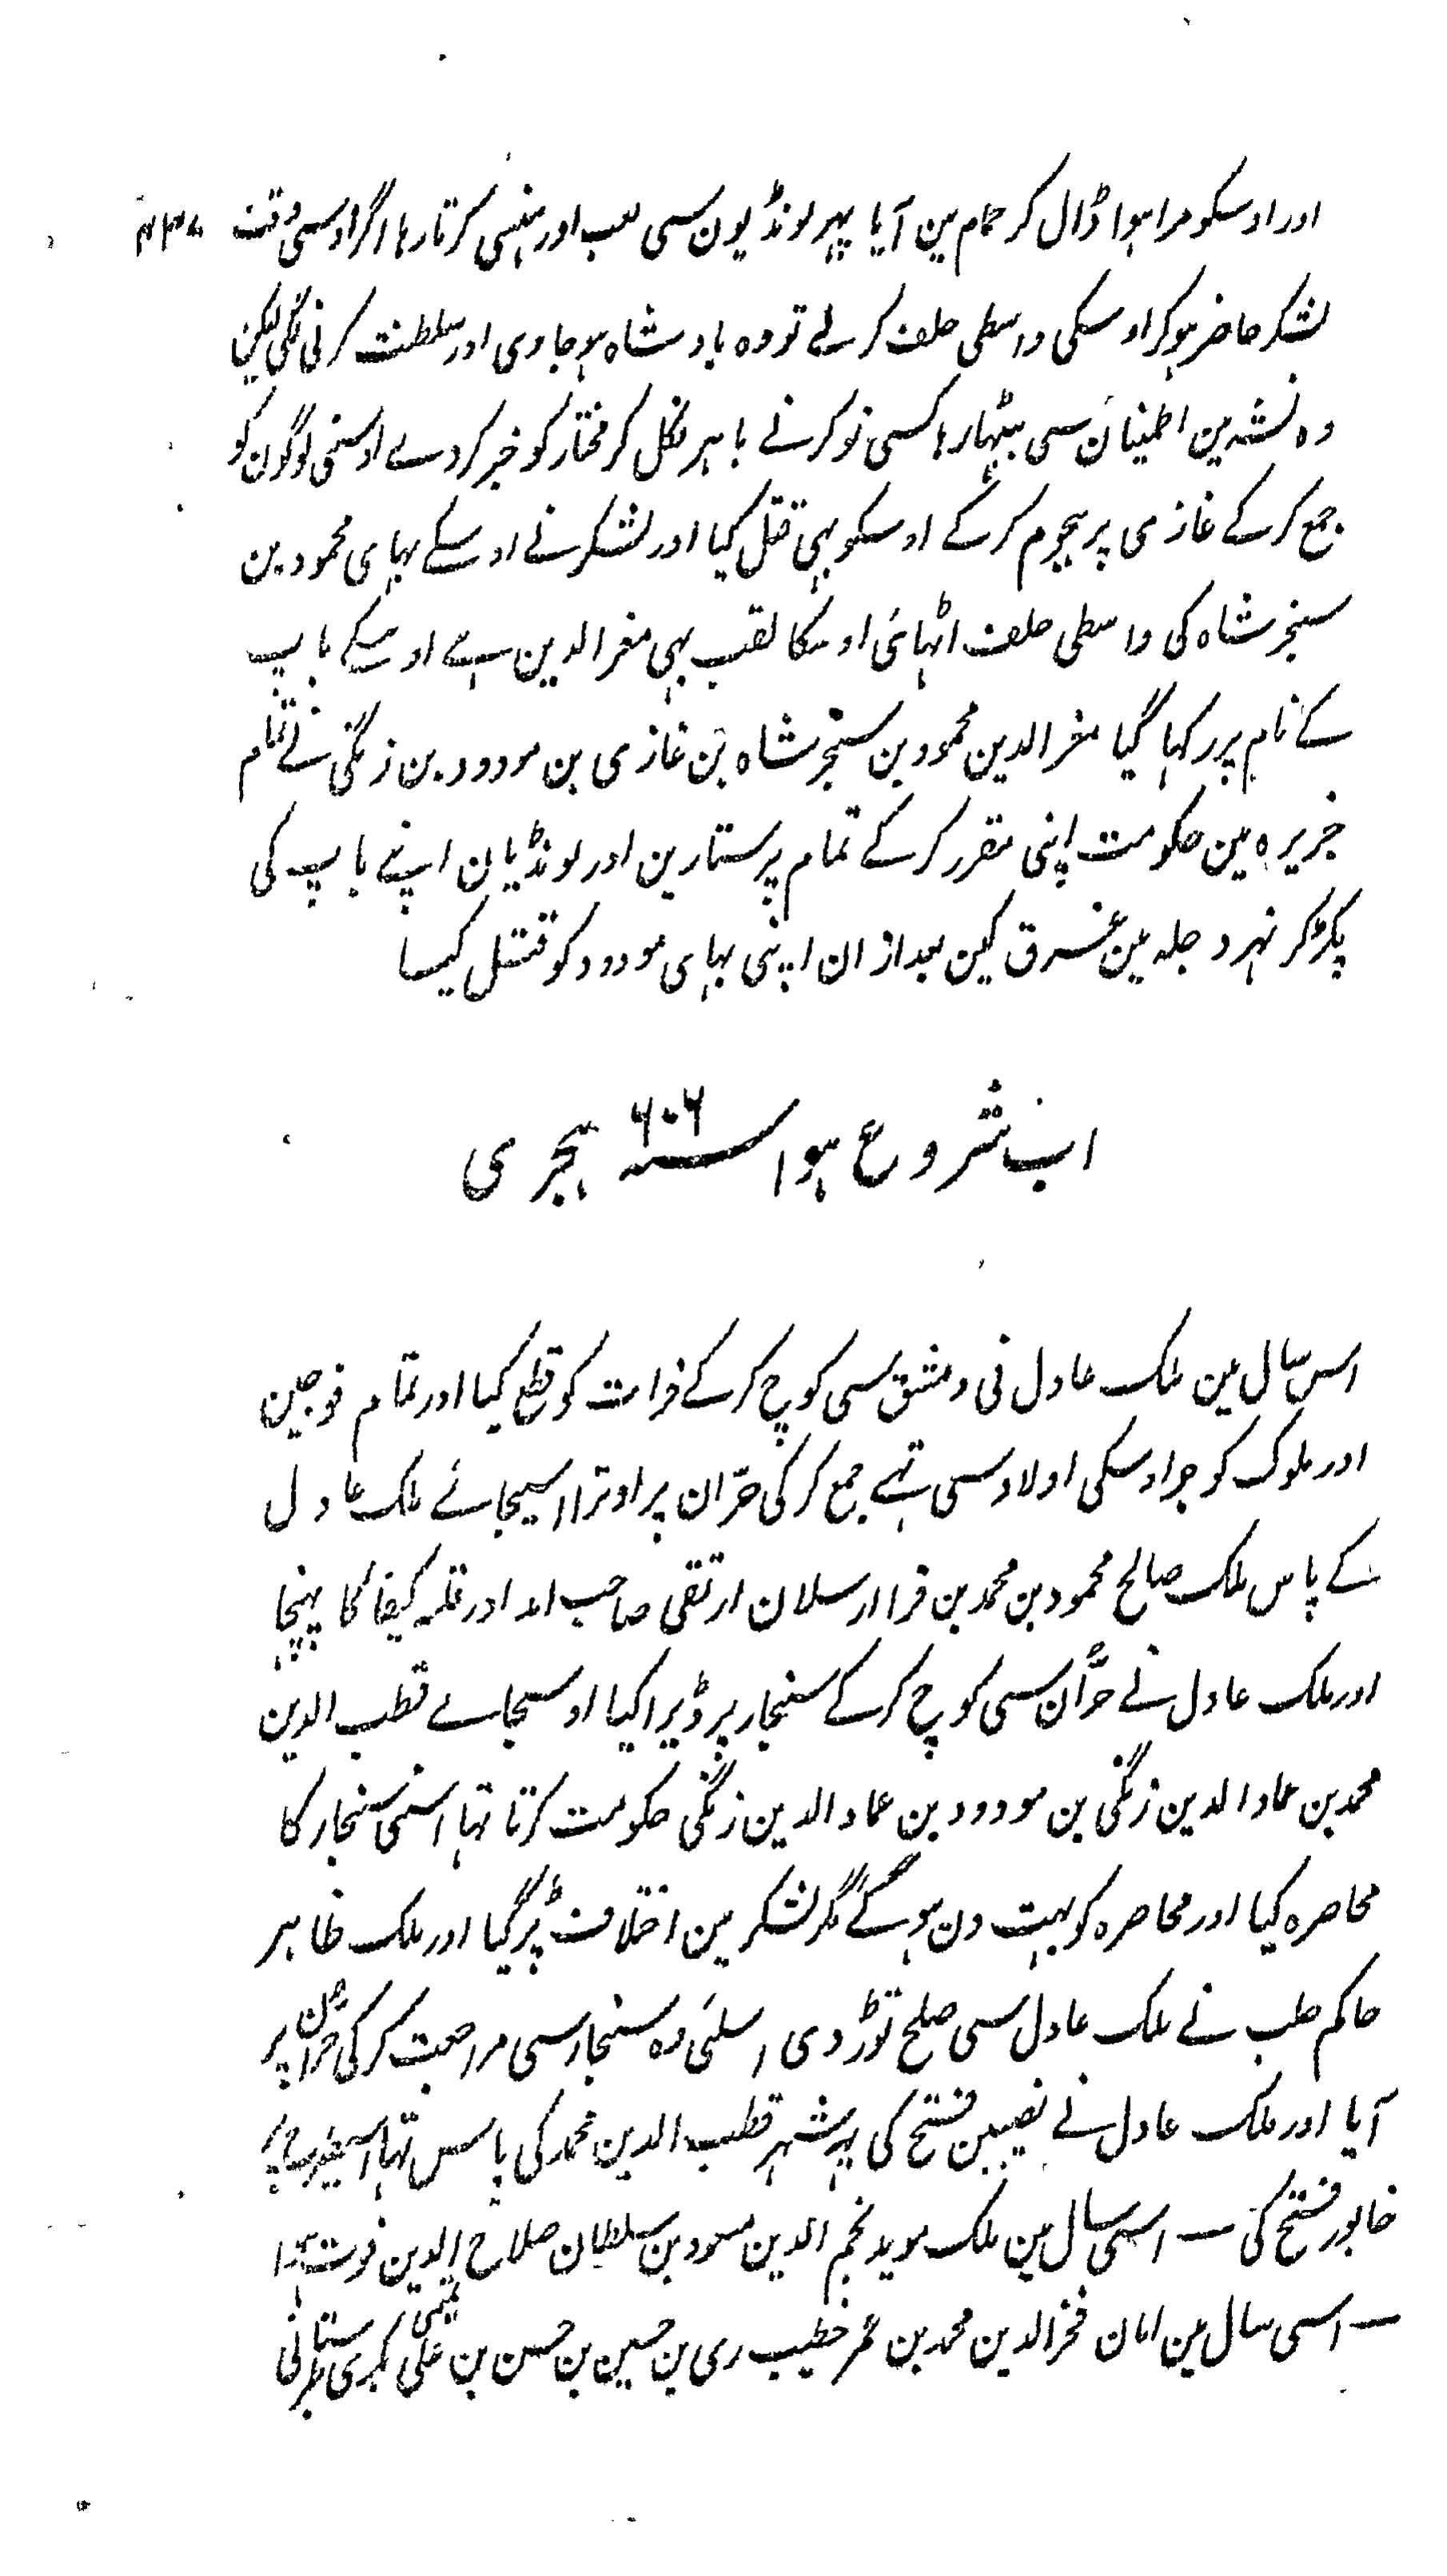 اور اوسکو مرا ہوا ڈال کر حمام مین آیا پہر لونڈیون سی لعب اور ہنسی کرتا رہا اگر اوسی وقت
لشکر حاضر ہوکر اوسکی واسطی حلف کر لے تو وہ بادشاہ ہوجاوی اور سلطنت کرنی لگی لیکن
وہ نشہ مین اطمینان سی بیٹہا رہا کسی نوکر نے باہر نکل کر مختار کو خبر کردے اوسنی لوگون کو
جمع کرکے غازی پر ہجوم کرکے اوسکو بہی قتل کیا اور لشکر نے اوسکے بہای محمود بن
سنجر شاہ کی واسطی حلف اٹہائی اوسکا لقب بہی معز الدین ہے اوسکے باپ
کے نام پر رکہا گیا معز الدین محمود بن سنجر شاہ بن غازی بن مودود بن زنگی نے تمام
جزیرہ مین حکومت اپنی مقرر کرکے تمام پرستارین اور لونڈیان اپنے باپ کی
پکڑکر نہر دجلہ مین غرق کین بعد ازان اپنی بہای مودود کو قتل کیا
اب شروع ہوا سنہ ۶۰۶ ہجری
اس سال مین ملک عادل نی دمشق سی کوچ کرکے فرات کو قطع کیا اور تمام فوجین
اور ملوک کو جو اوسکی اولاد سی تہے جمع کرکی حرّان پر اوترا اسیجائے ملک عادل
کے پاس ملک صالح محمود بن محمد بن قرا ارسلان ارتقی صاحب امد اور قلعہ کیفا کا پہنچا
اور ملک عادل نے حرّان سی کوچ کرکے سنجار پر ڈیرا کیا اوسجائے قطب الدین
محمد بن عماد الدین زنگی بن مودود بن عماد الدین زنگی حکومت کرتا تہا اسنی سنجار کا
محاصرہ کیا اور محاصرہ کو بہت دن ہوگے مگر لشکر مین اختلاف پڑگیا اور ملک ظاہر
حاکم حلب نے ملک عادل سی صلح توڑ دی اسلئی وہ سنجار سی مراجعت کرکی حرّان پر
آیا اور ملک عادل نے نصیبین فتح کی یہ شہر قطب الدین محمد کی پاس تہا
خابور فتح کی — اسی سال مین ملک موید نجم الدین مسعود بن سلطان صلاح الدین فوت ہوا
— اسی سال مین امان فخر الدین محمد بن عمر خطیب ری بن حسین بن حسن بن علی تمیمی بکری طبرستانی